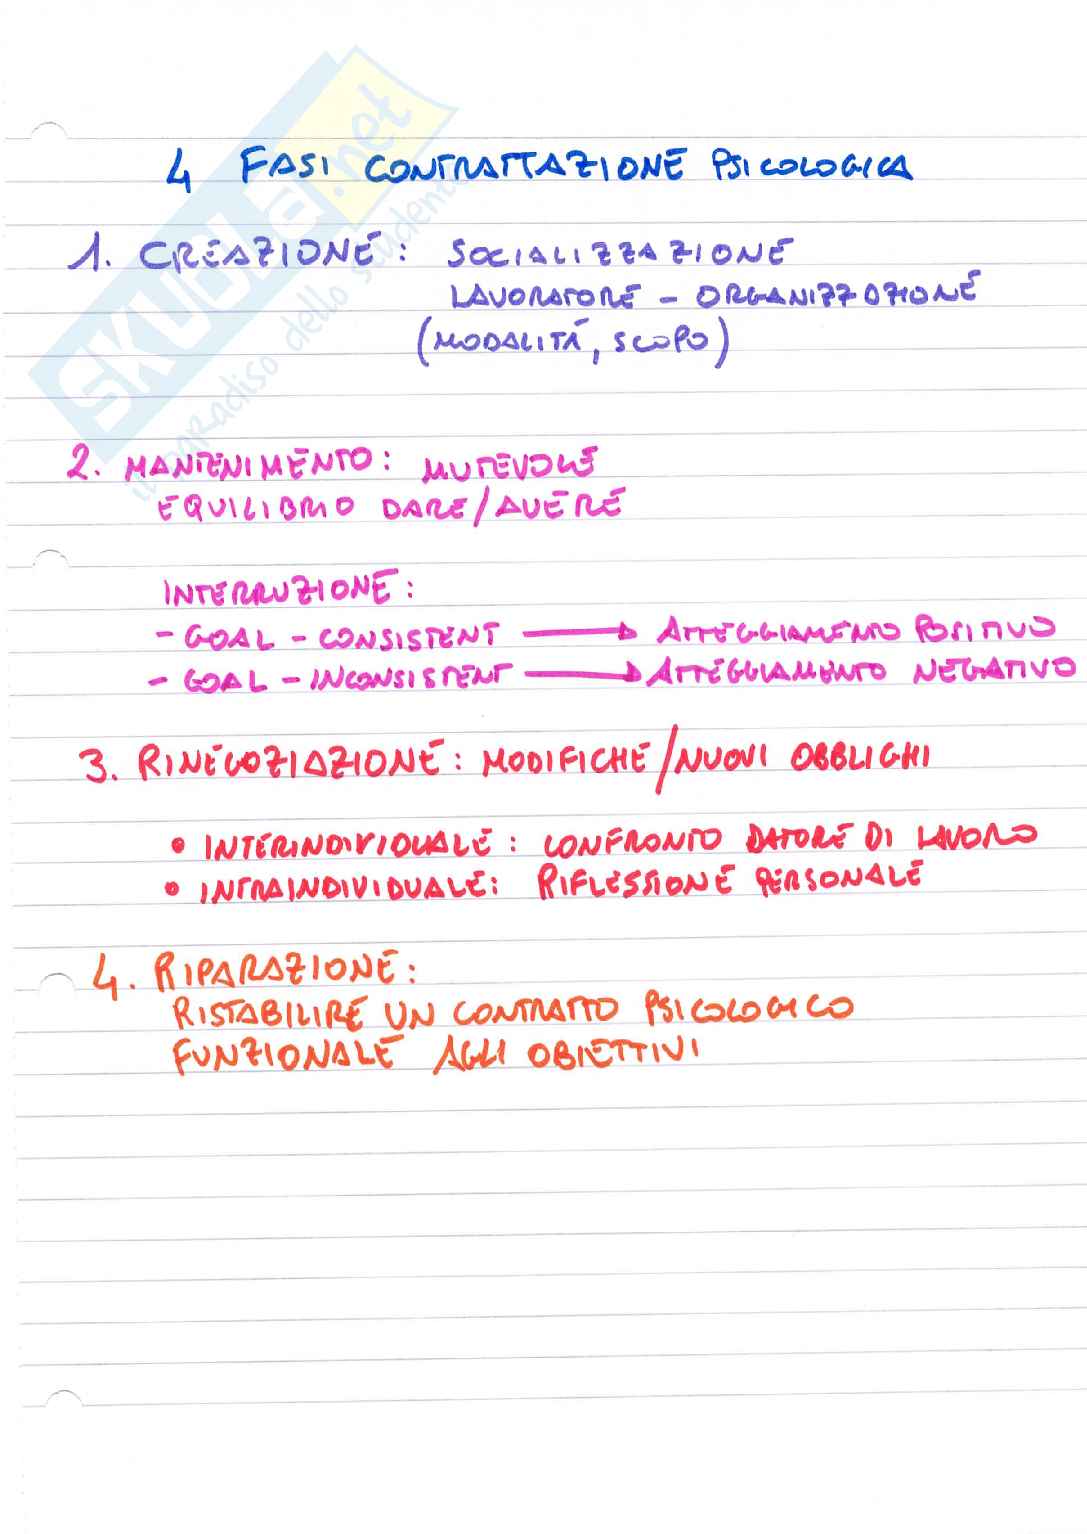 SKUOLA.net
il paradiso dello studente
4 FASI CONTRATTAZIONE PSICOLOGICA
1. CREAZIONE: SOCIALIZZAZIONE
LAVORATORE - ORGANIZZAZIONE
(MODALITÁ, SCOPO)
2. MANTENIMENTO: MUTEVOLE
EQUILIBRIO DARE/AVERE
INTERRUZIONE:
- GOAL - CONSISTENT → ATTEGGIAMENTO POSITIVO
- GOAL - INCONSISTENT → ATTEGGIAMENTO NEGATIVO
3. RINEGOZIAZIONE: MODIFICHE/NUOVI OBBLIGHI
• INTERINDIVIDUALE: CONFRONTO DATORE DI LAVORO
• INTRAINDIVIDUALE: RIFLESSIONE PERSONALE
4. RIPARAZIONE:
RISTABILIRE UN CONTRATTO PSICOLOGICO
FUNZIONALE AGLI OBIETTIVI